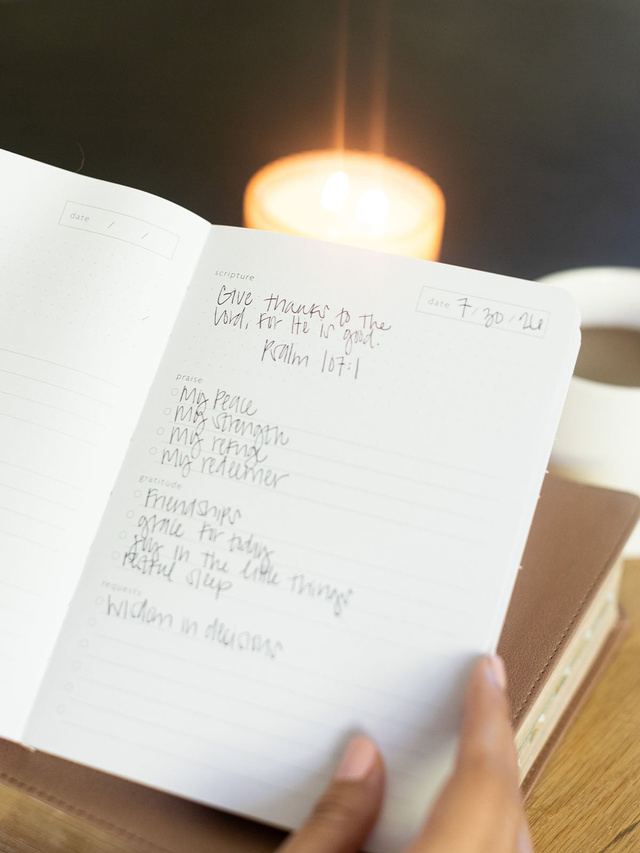 date / /
scripture
date 7/30/26
Give thanks to the
Lord, For He is good.
Psalm 107:1
praise
My Peace
My strength
My refuge
My redeemer
gratitude
Friendships
grace For today
Joy in the little things
restful sleep
requests
Wisdom in decisions